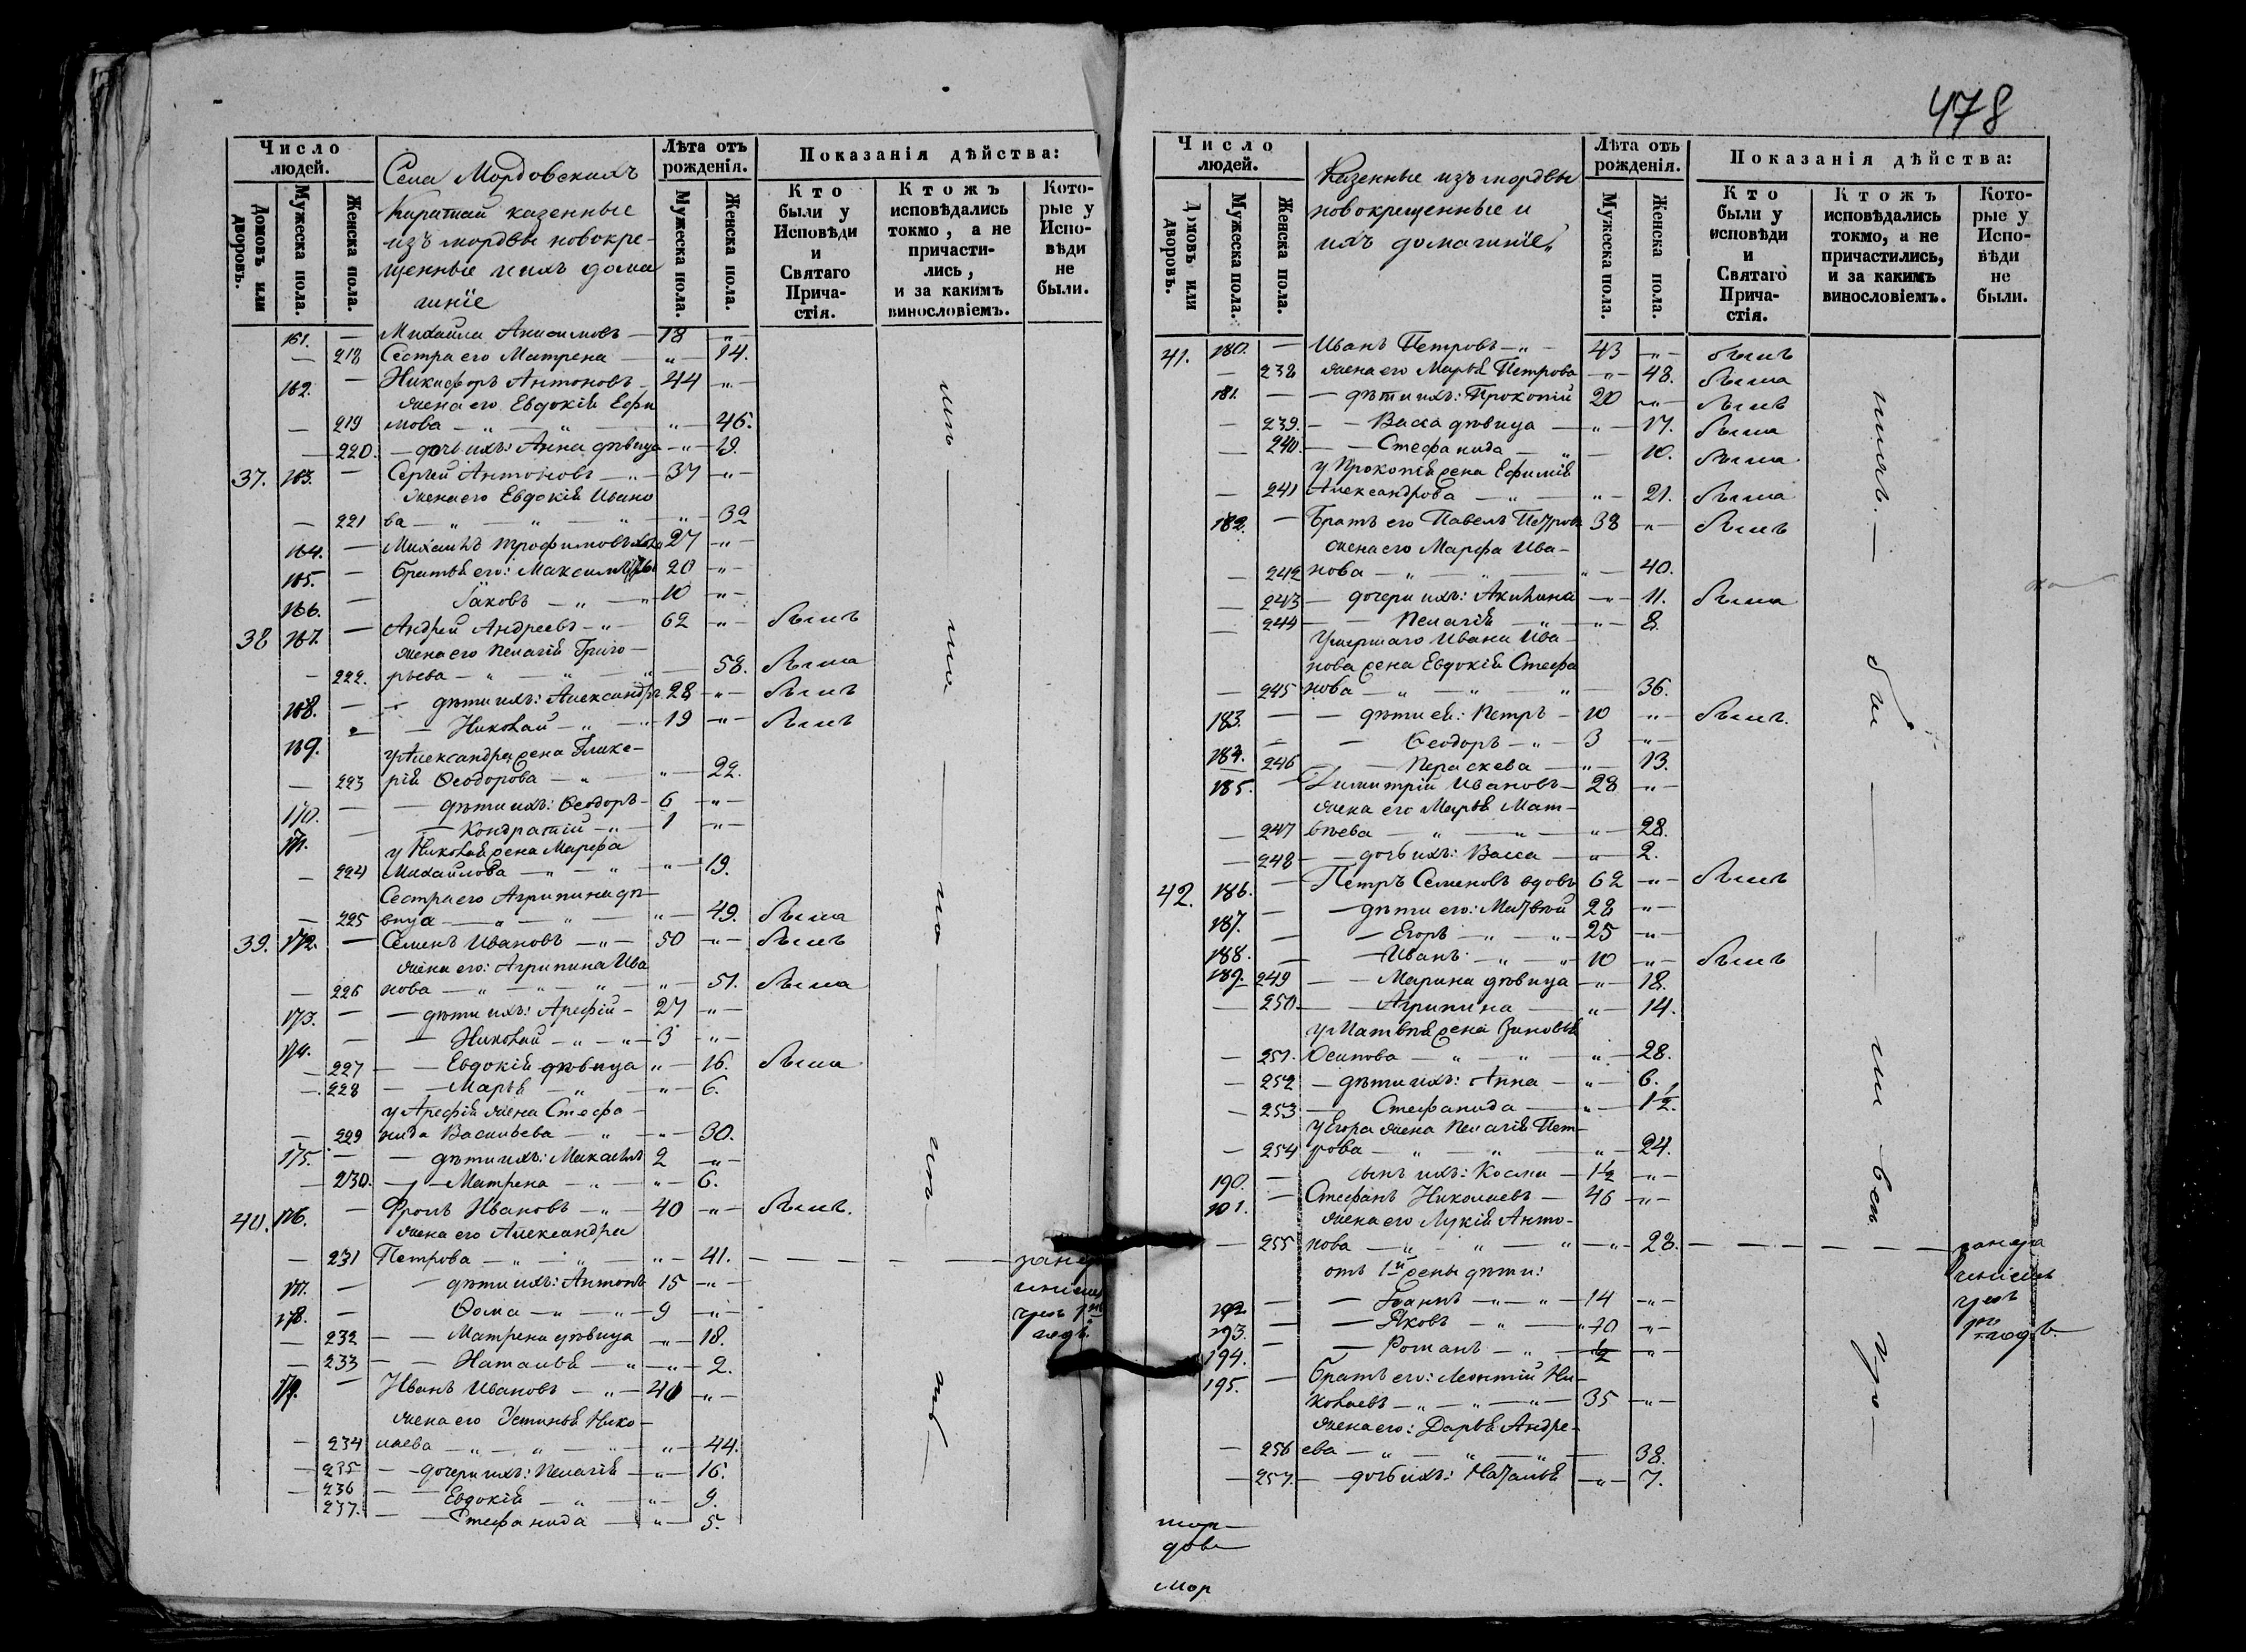 478
Число людей.
Домовъ или дворовъ.
Мужеска пола.
Женска пола.
Села Мордовскихъ
Каратай казенные
изъ мордвы новокре-
щенные и ихъ дома
шніе
Лѣта отъ рожденія.
Мужеска пола.
Женска пола.
Показанія дѣйства:
Кто были у Исповѣди и Святаго Прича-стія.
Ктожъ исповѣдались токмо, а не причасти-лись, и за какимъ винословіемъ.
Кото-рые у Испо-вѣди не были.
161. — Михайла Анисимовъ — 18 —„—
— 218 Сестра его Матрена — „ — 14.
162. — Никифоръ Антоновъ — 44 —„—
жена его Евдокія Ефи
— 219 мова — „ — „ — „ — 46.
— 220. — дочь ихъ: Анна дѣвица — „ — 19.
37. 163. — Сергѣй Антоновъ — „ — 37 —„—
жена его Евдокія Ивано
— 221 ва — „ — „ — „ — „ — 39
164. — Михаилъ Трофимовъ 27 —„—
165. — братья его: Максимъ 20 —„—
166. — Іаковъ — „ — „ 10 —„—
38 167. — Андрей Андреевъ — „ — 62 —„— былъ
жена его Пелагія Григо-
— 222. рьева — „ — „ — „ — 58. была
168. — — дѣти ихъ: Александръ 28 —„— былъ
169. — — Николай — „ — „ 19 —„— былъ
у Александра жена Глике-
— 223 рія Ѳеодорова — „ — „ — 22.
170. — — дѣти ихъ: Ѳеодоръ — 6 —„—
171. — — Кондратій — „ — 1 —„—
у Николая жена Марфа
— 224 Михайлова — „ — „ — „ — 19.
Сестра его Агрипина дѣ-
— 225 вица — „ — „ — „ — 49. была
39. 172. — Семенъ Ивановъ — „ — 50 —„— былъ
жена его: Агрипина Ива
— 226 нова — „ — „ — „ — „ — 51. была
173. — — дѣти ихъ: Арефій — 27 —„—
174. — — Николай — „ — „ — 3 —„—
— 227 — — Евдокія дѣвица „ — 16. была
— 228 — — Марья — „ — „ — 6.
у Арефія жена Стефа-
— 229 нида Васильева — „ — „ — 30.
175. — — дѣти ихъ: Михаилъ 2 —„—
— 230. — — Матрена — „ — „ — 6.
40. 176. — Фролъ Ивановъ — „ — 40 —„— былъ.
жена его Александра
— 231 Петрова — „ — „ — „ — 41. — — — —
177. — — дѣти ихъ: Антонъ 15 —„—
178. — Ѳома — „ — „ — 9 —„—
— 232 — — Матрена дѣвица — „ — 18.
— 233 — — Наталья — „ — „ — 2.
179. — Иванъ Ивановъ — „ — 40 —„—
жена его Устинья Нико-
— 234 лаева — „ — „ — „ — „ — 44.
— 235 — — дочери ихъ: Пелагія — „ — 16.
— 236 — — Евдокія — „ — „ — 9.
237. — — Стефанида — „ — 5.
Число людей.
Домовъ или дворовъ.
Мужеска пола.
Женска пола.
Казенные изъ мордвы
новокрещенные и
ихъ домашніе
Лѣта отъ рожденія.
Мужеска пола.
Женска пола.
Показанія дѣйства:
Кто были у исповѣди и Святаго Прича-стія.
Ктожъ исповѣдались токмо, а не причастились, и за какимъ винословіемъ.
Кото-рые у Испо-вѣди не были.
41. 180. — Иванъ Петровъ — „ — 43 —„— былъ
— 238 жена его Марья Петрова — „ — 48. была
181. — — дѣти ихъ: Прокопій 20 —„— былъ
— 239. — — Васса дѣвица — „ — 17. была
— 240. — — Стефанида — „ — 10. была
у Прокопія жена Ефимія
— 241 Александрова — „ — „ — 21. была
182. — Братъ его Павелъ Петровъ 38 —„— былъ
жена его Марфа Ива-
— 242 нова — „ — „ — „ — 40.
— 243 — дочери ихъ: Акилина — „ — 11. была
— 244 — — Пелагія — „ — „ — 8.
Умершаго Ивана Ива-
нова жена Евдокія Стефа
— 245 нова — „ — „ — „ — 36.
183. — — дѣти ея: Петръ — 10 —„— былъ.
184. — — Ѳеодоръ — „ — 3 —„—
— 246 — Параскева — „ — 13.
185. — Димитрій Ивановъ — 28 —„—
жена его Марья Мат-
— 247 вѣева — „ — „ — „ — 28.
— 248 — — дочь ихъ: Васса — „ — 2.
42. 186. — Петръ Семеновъ вдовъ 62 —„— былъ
187. — — дѣти его: Матвѣй 28 —„—
188. — — Егоръ — „ — „ — 25 —„—
189. — — Иванъ — „ — „ 10 —„— былъ
249 — — Марина дѣвица — „ — 18.
— 250 — — Агрипина — „ — 14.
у Матвѣя жена Зиновья
— 251. Осипова — „ — „ — „ — 28.
— 252 — дѣти ихъ: Анна — „ — 6.
— 253 — Стефанида — „ — 1½.
у Егора жена Пелагія Пет-
— 254 рова — „ — „ — „ — 24.
190. — сынъ ихъ: Косма — 1½ —„—
191. — Стефанъ Николаевъ — 46 —„—
жена его Лукія Анто-
— 255 нова — „ — „ — „ — „ — 28. — — — —
отъ 1й жены дѣти:
192 — — Іоаннъ — „ — „ — 14 —„—
193. — — Яковъ — „ — „ 10 —„—
194. — — Романъ — „ — ½ —„—
195. — Братъ его: Леонтій Ни-
колаевъ — „ — „ — „ — 35 —„—
жена его: Дарья Андре-
— 256 ева — „ — „ — „ — 38.
— 257. — — дочь ихъ: Наталья — „ — 7.
Мор